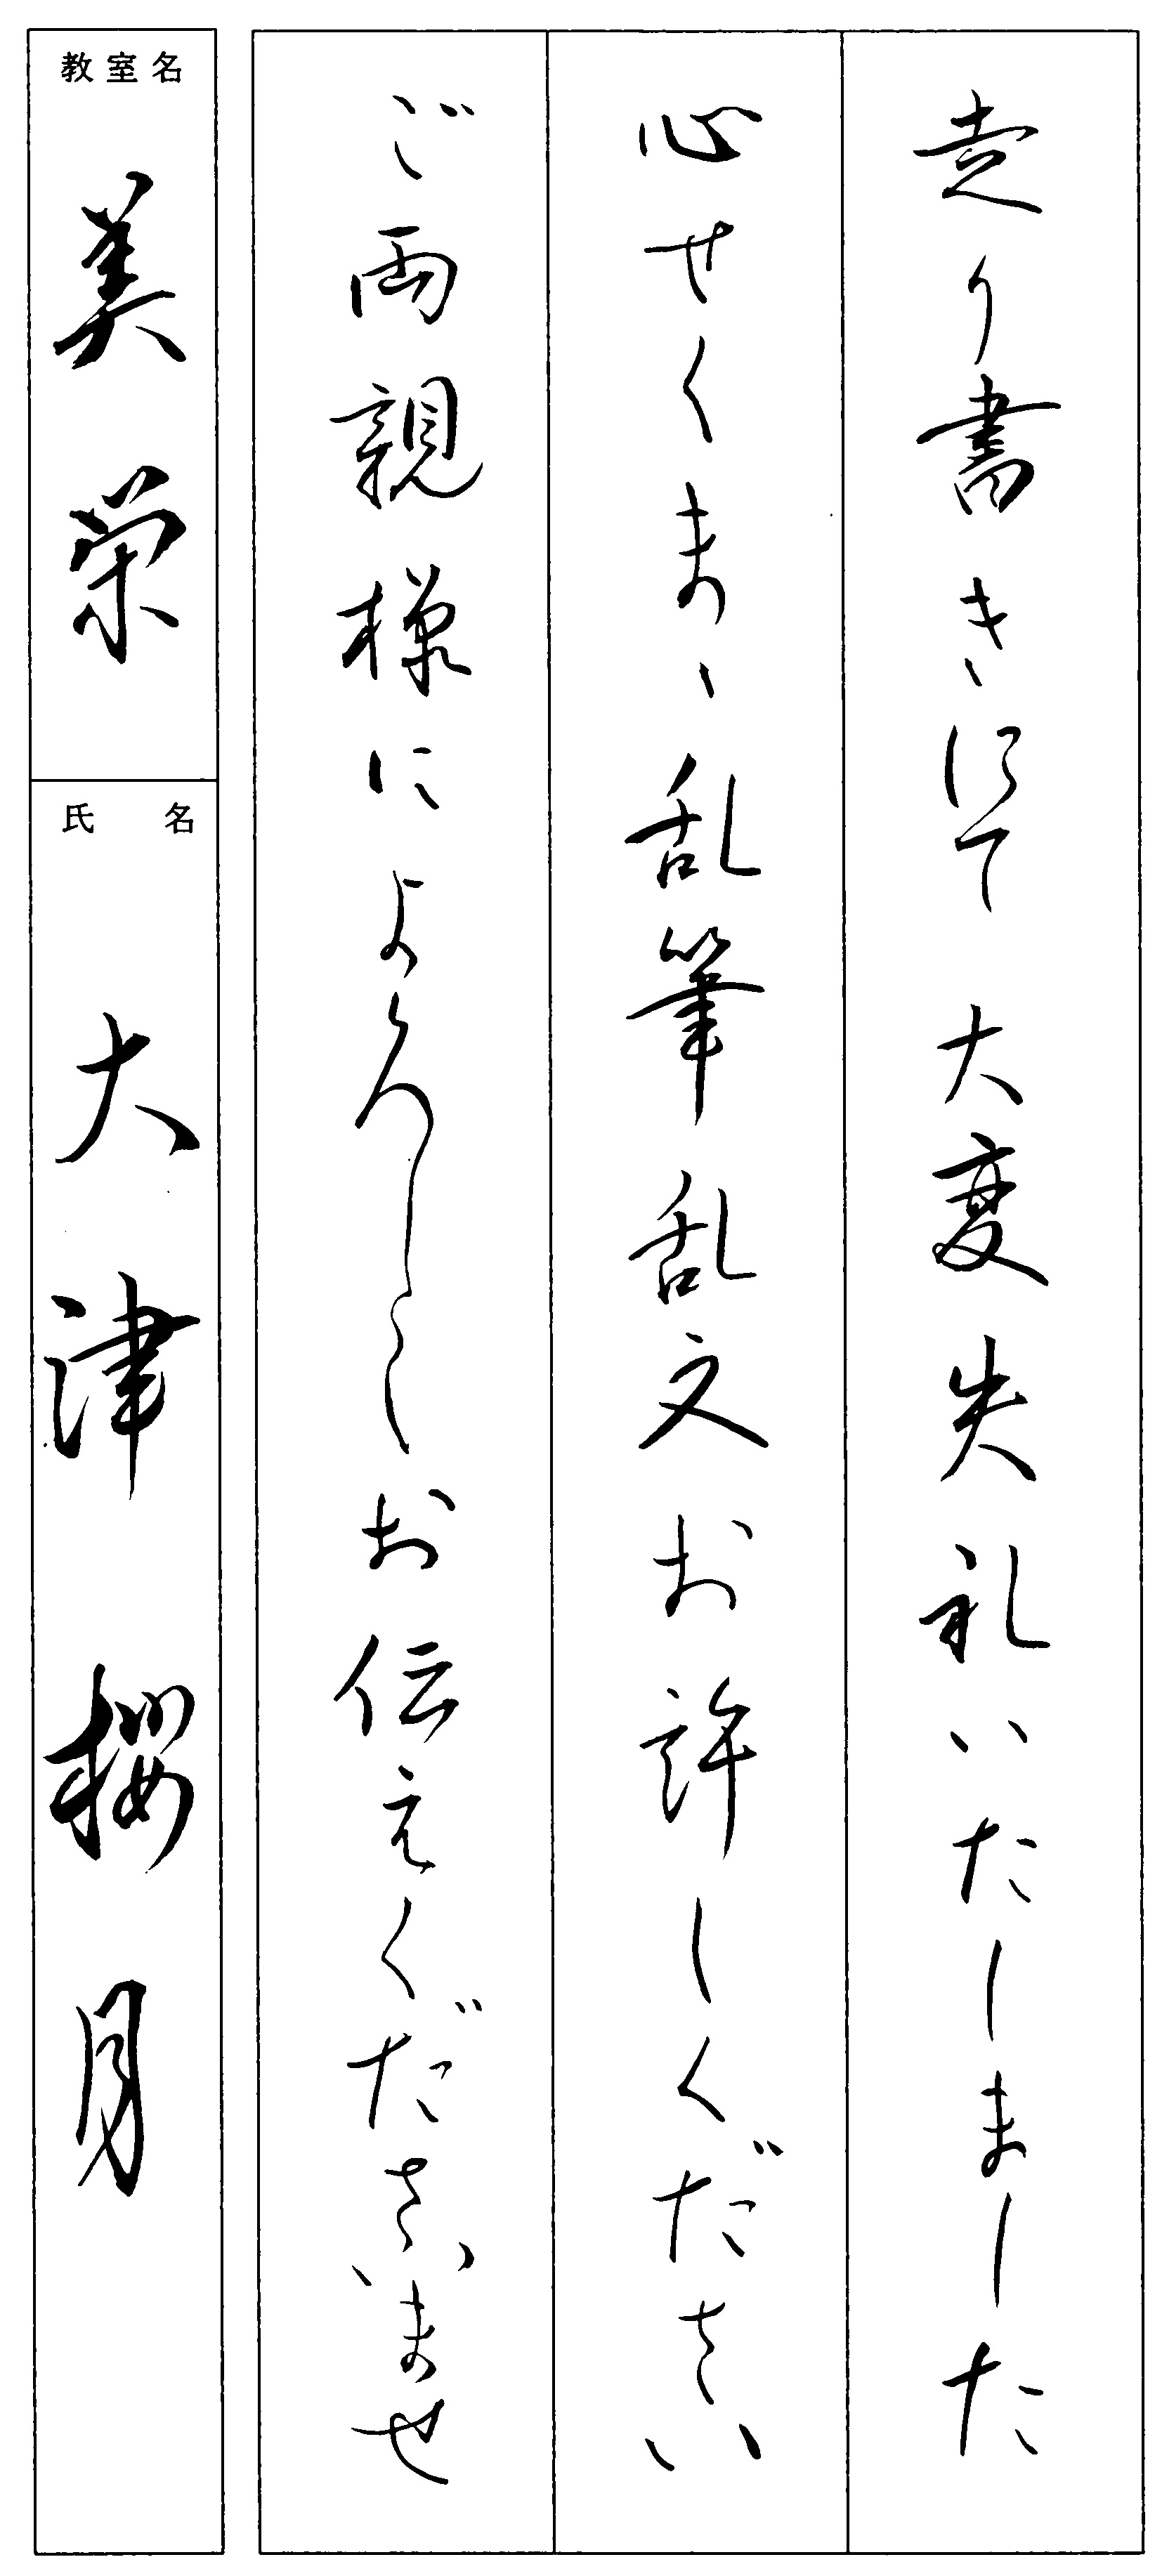 走り書きにて大変失礼いたしました
心せくまゝ乱筆乱文お許しください
ご両親様によろしくお伝えくださいませ
教室名
美栄
氏名
大津桜月